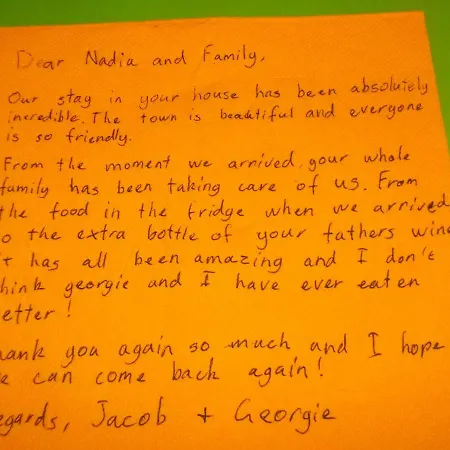 Dear Nadia and Family,
Our stay in your house has been absolutely
incredible. The town is beautiful and everyone
is so friendly.
From the moment we arrived, your whole
family has been taking care of us. From
the food in the fridge when we arrived
o the extra bottle of your fathers wine
it has all been amazing and I don't
hink georgie and I have ever eaten
etter!
hank you again so much and I hope
e can come back again!
egards, Jacob + Georgie